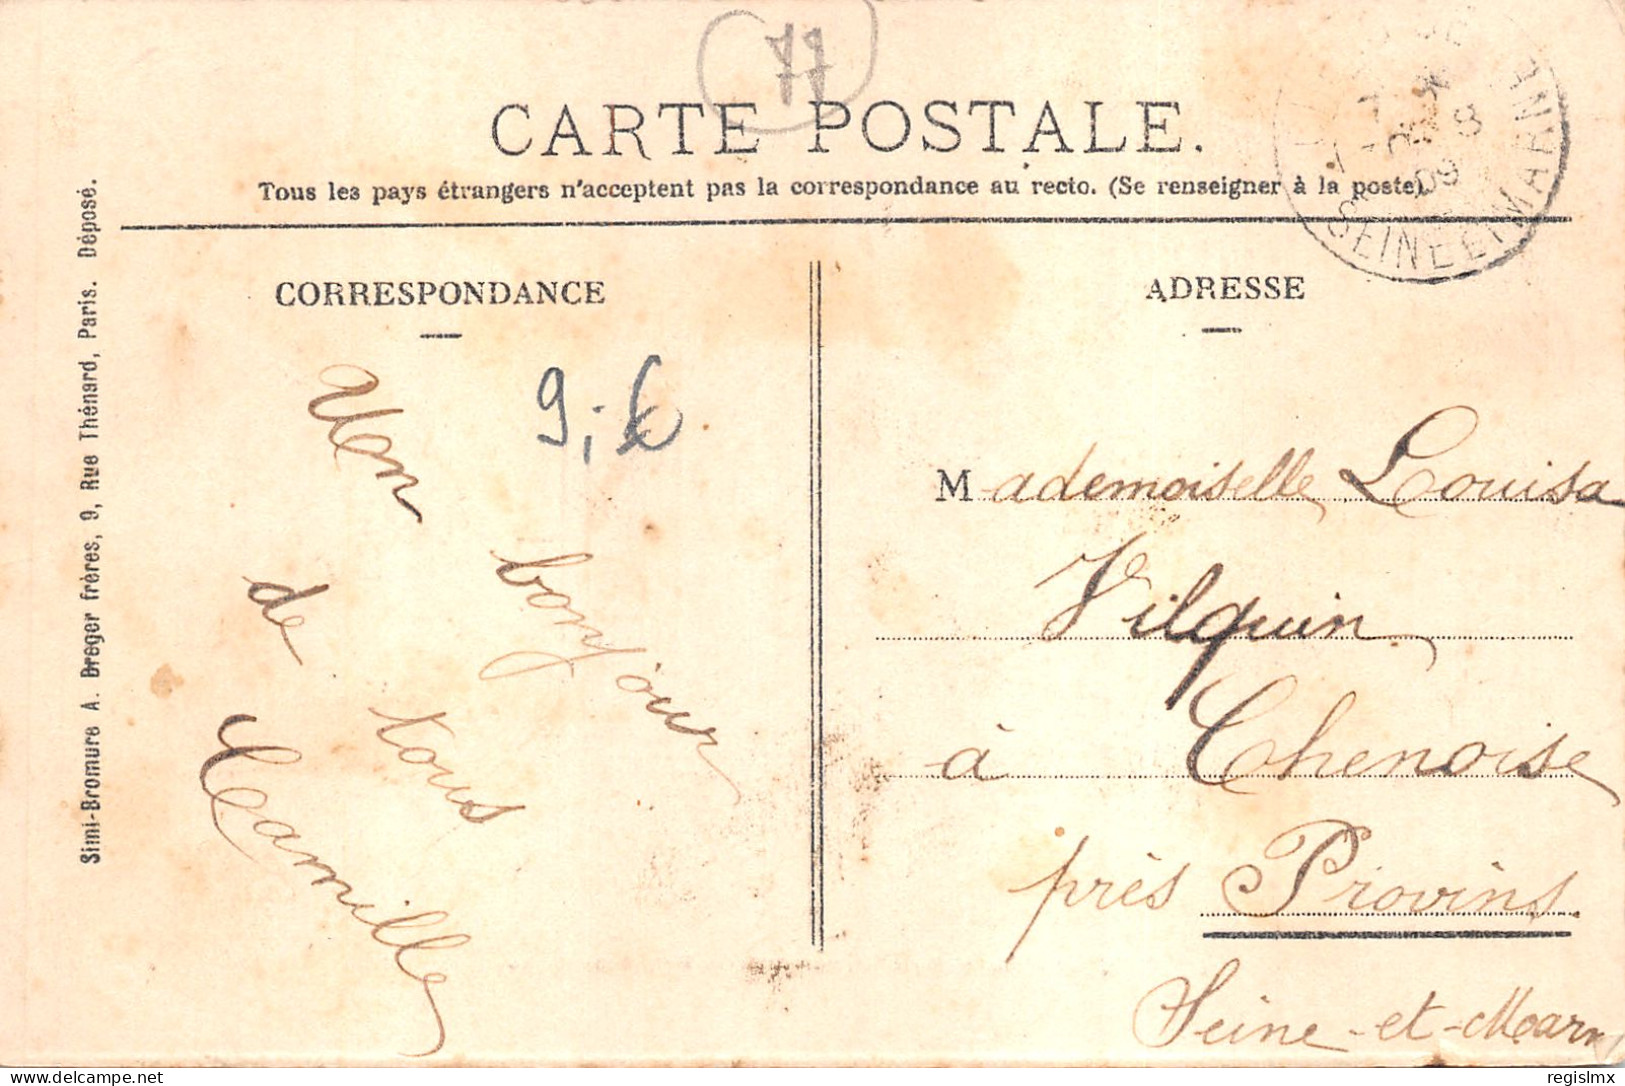 77
CARTE POSTALE.
Tous les pays étrangers n'acceptent pas la correspondance au recto. (Se renseigner à la poste).
SEINE ET MARNE
09
Simi-Bromure A. Breger frères, 9, Rue Thénard, Paris. Déposé.
CORRESPONDANCE
Un bonjour
de tous
Camille
ADRESSE
Mademoiselle Louisa
Vilquin
à Chenoise
près Provins
Seine-et-Marn
regislmx